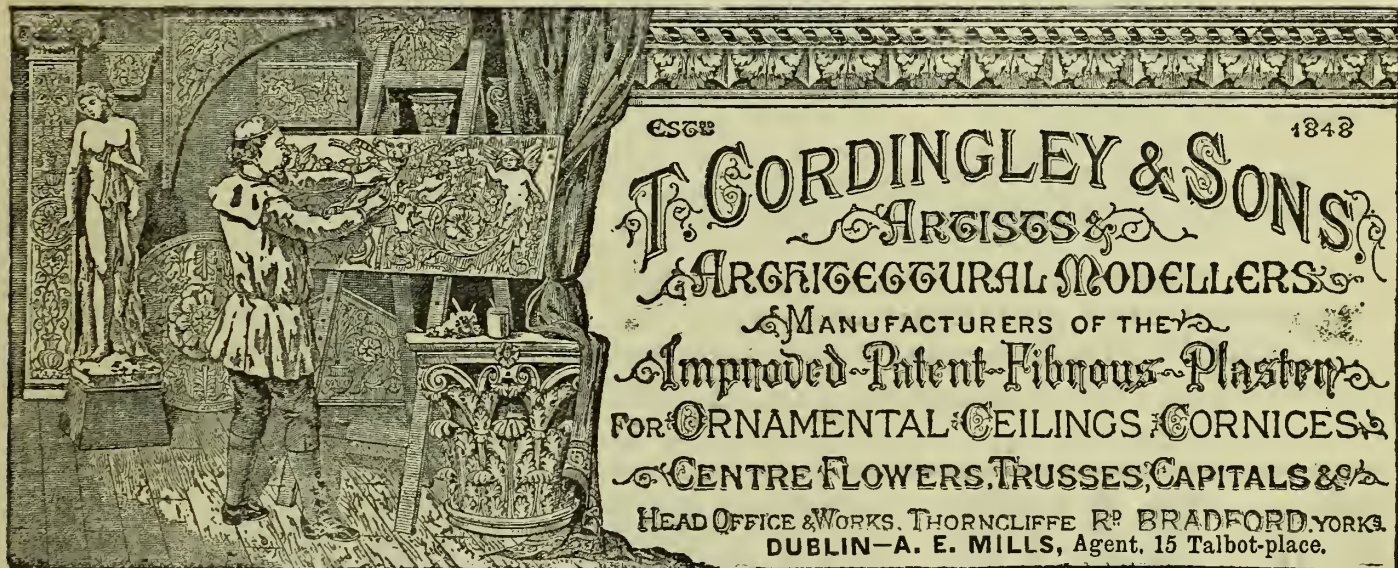 ESTD 1848
T. CORDINGLEY & SONS,
ARTISTS &
ARCHITECTURAL MODELLERS
MANUFACTURERS OF THE
Improved Patent Fibrous Plaster
FOR ORNAMENTAL CEILINGS CORNICES
CENTRE FLOWERS, TRUSSES, CAPITALS &c
HEAD OFFICE & WORKS. THORNCLIFFE RD BRADFORD. YORKS.
DUBLIN—A. E. MILLS, Agent, 15 Talbot-place.